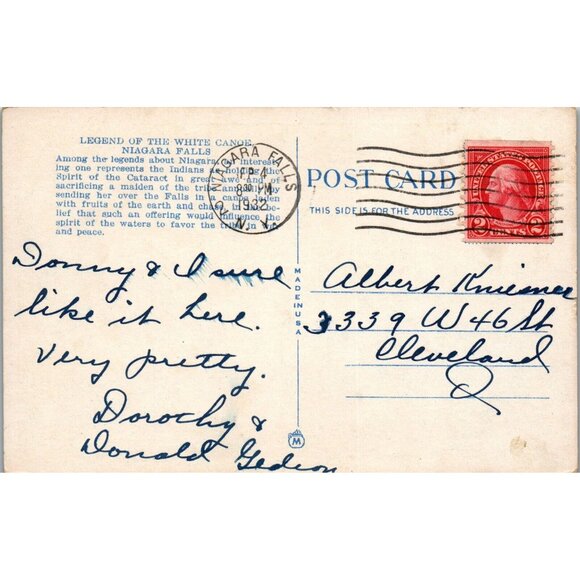 LEGEND OF THE WHITE CANOE,
NIAGARA FALLS
Among the legends about Niagara, an interest-
ing one represents the Indians as holding the
Spirit of the Cataract in great awe and of
sacrificing a maiden of the tribe annually by
sending her over the Falls in a canoe laden
with fruits of the earth and chase, in the be-
lief that such an offering would influence the
spirit of the waters to favor the tribe in war
and peace.
NIAGARA FALLS
4
8 30 PM
1932
N. Y.
POST CARD
THIS SIDE IS FOR THE ADDRESS
2 2
MADE IN USA
Donny & I sure
like it here.
Very pretty.
Dorothy &
Donald Gedeon
Albert
3339 W 46 St
Cleveland
O
M